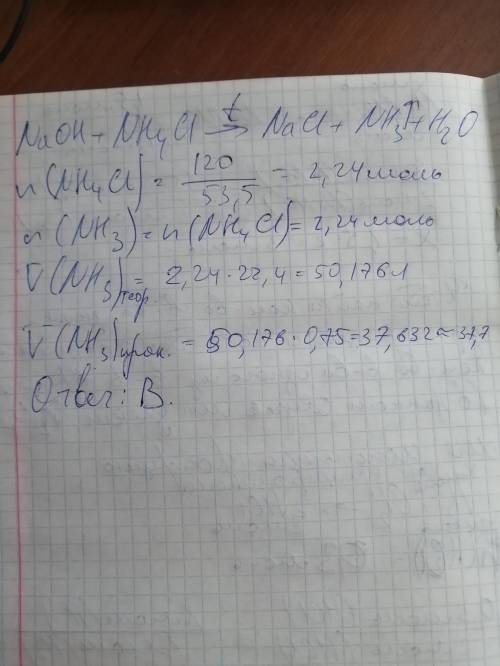 NaOH + NH4Cl →t NaCl + NH3↑ + H2O
n(NH4Cl) = 120/53,5 = 2,24 моль
n(NH3) = n(NH4Cl) = 2,24 моль
V(NH3)теор = 2,24 · 22,4 = 50,176 л
V(NH3)прак. = 50,176 · 0,75 = 37,632 ≈ 37,7
Ответ: В.